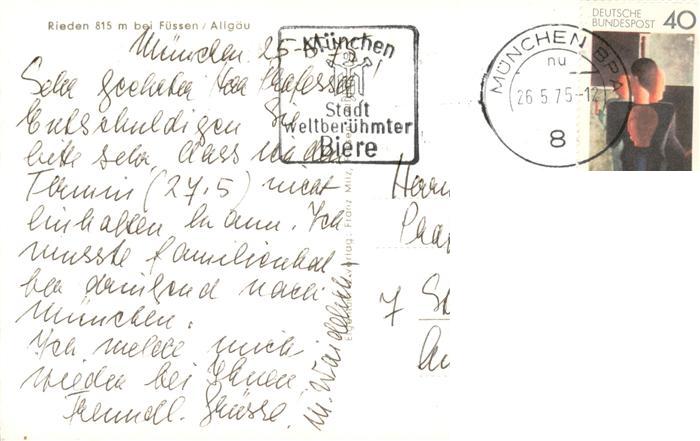 Rieden 815 m bei Füssen / Allgäu
München 25-5-75
Sehr geehrter Herr Professor!
Entschuldigen Sie
bitte sehr, dass ich den
Termin (27.5) nicht
einhalten kann. Ich
musste familienhal
ber dringend nach
München.
Ich melde mich
wieder bei Ihnen
Freundl. Grüsse!
München
Stadt
weltberühmter
Biere
MÜNCHEN BPA
nu
26.5.75-12
8
DEUTSCHE
BUNDESPOST 40
Herrn
7 St
Franz Milz,